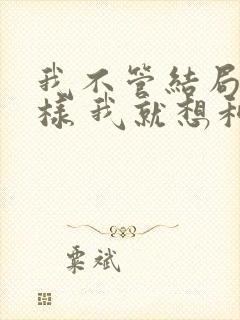 我不管結局
樣我就想和
粟斌